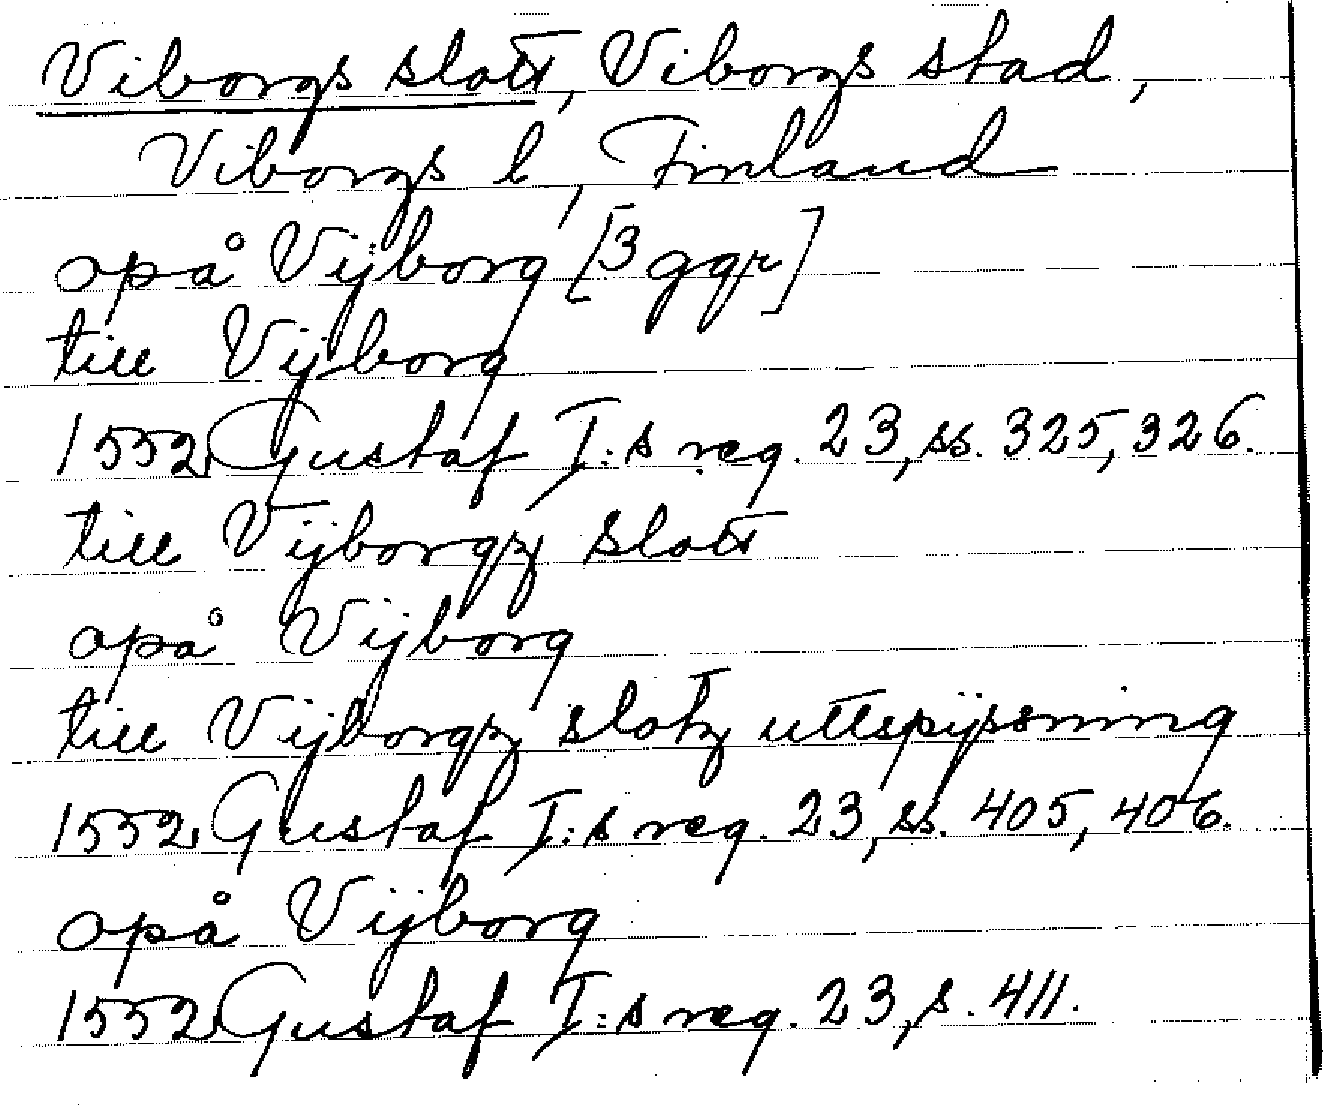 Viborgs slott, Viborgs stad,
Viborgs l, Finland
opå Vijborg [3 ggr]
till Vijborg
1552 Gustaf I:s reg. 23, ss. 325, 326.
till Vijborgz slott
opå Vijborg
till Vijborgz slotz uttspijsning
1552 Gustaf I:s reg. 23, ss. 405, 406.
opå Vijborg
1552 Gustaf I:s reg. 23, s. 411.